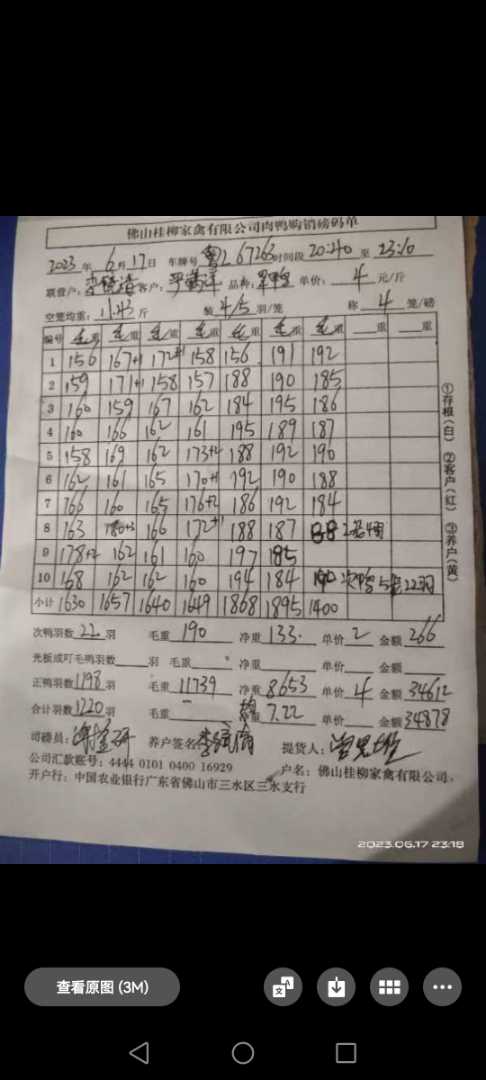 佛山桂柳家禽有限公司肉鸭购销磅码单
2023 年 6 月 17 日 车牌号 粤L 67263 时间段 20:40 至 23:10
联营户: 客户: 品种: 单价: 4 元/斤
空笼均重: 11.43 斤 装 4/5 羽/笼 称 4 笼/磅
编号 毛重 毛重 毛重 毛重 毛重 毛重 毛重 重 重
1 156 167+1 172+1 158 156 191 192
2 159 171+1 158 157 188 190 185
3 160 159 167 162 184 195 186
4 160 166 162 161 195 189 187
5 158 169 162 173+2 188 192 190
6 162 161 165 170+1 192 190 188
7 166 160 165 176+2 186 192 184
8 163 180+3 166 172+1 188 187 88
9 178+2 162 161 160 197 185
10 168 162 162 160 194 184 190 次鸭5笼22羽
小计 1630 1657 1640 1649 1868 1895 1400
①存根(白) ②客户(红) ③养户(黄)
次鸭羽数 22 羽 毛重 190 净重 133. 单价 2 金额 266
光板或叮毛鸭羽数 羽 毛重 净重 单价 金额
正鸭羽数 1198 羽 毛重 11739 净重 8653 单价 4 金额 34612
合计羽数 1220 羽 毛重 均重 7.22 单价 金额 34878
司磅员: 养户签名: 提货人:
公司汇款账号: 4444 0101 0400 16929 户名: 佛山桂柳家禽有限公司。
开户行: 中国农业银行广东省佛山市三水区三水支行
2023.06.17 23:18
查看原图 (3M)